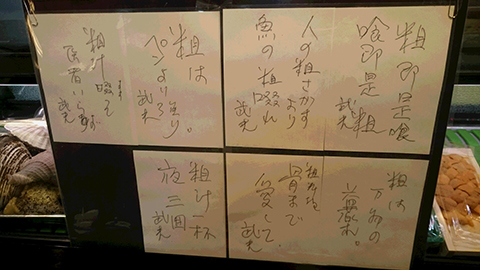 粗即是喰
喰即是粗
武光
人の粗さがすより
魚の粗啜れ
武光
粗は
ペンより強し。
武光
粗汁啜る
医者いらず
武光
粗は
万病の
骨まで
愛して。
武光
粗汁一杯
夜三回
武光